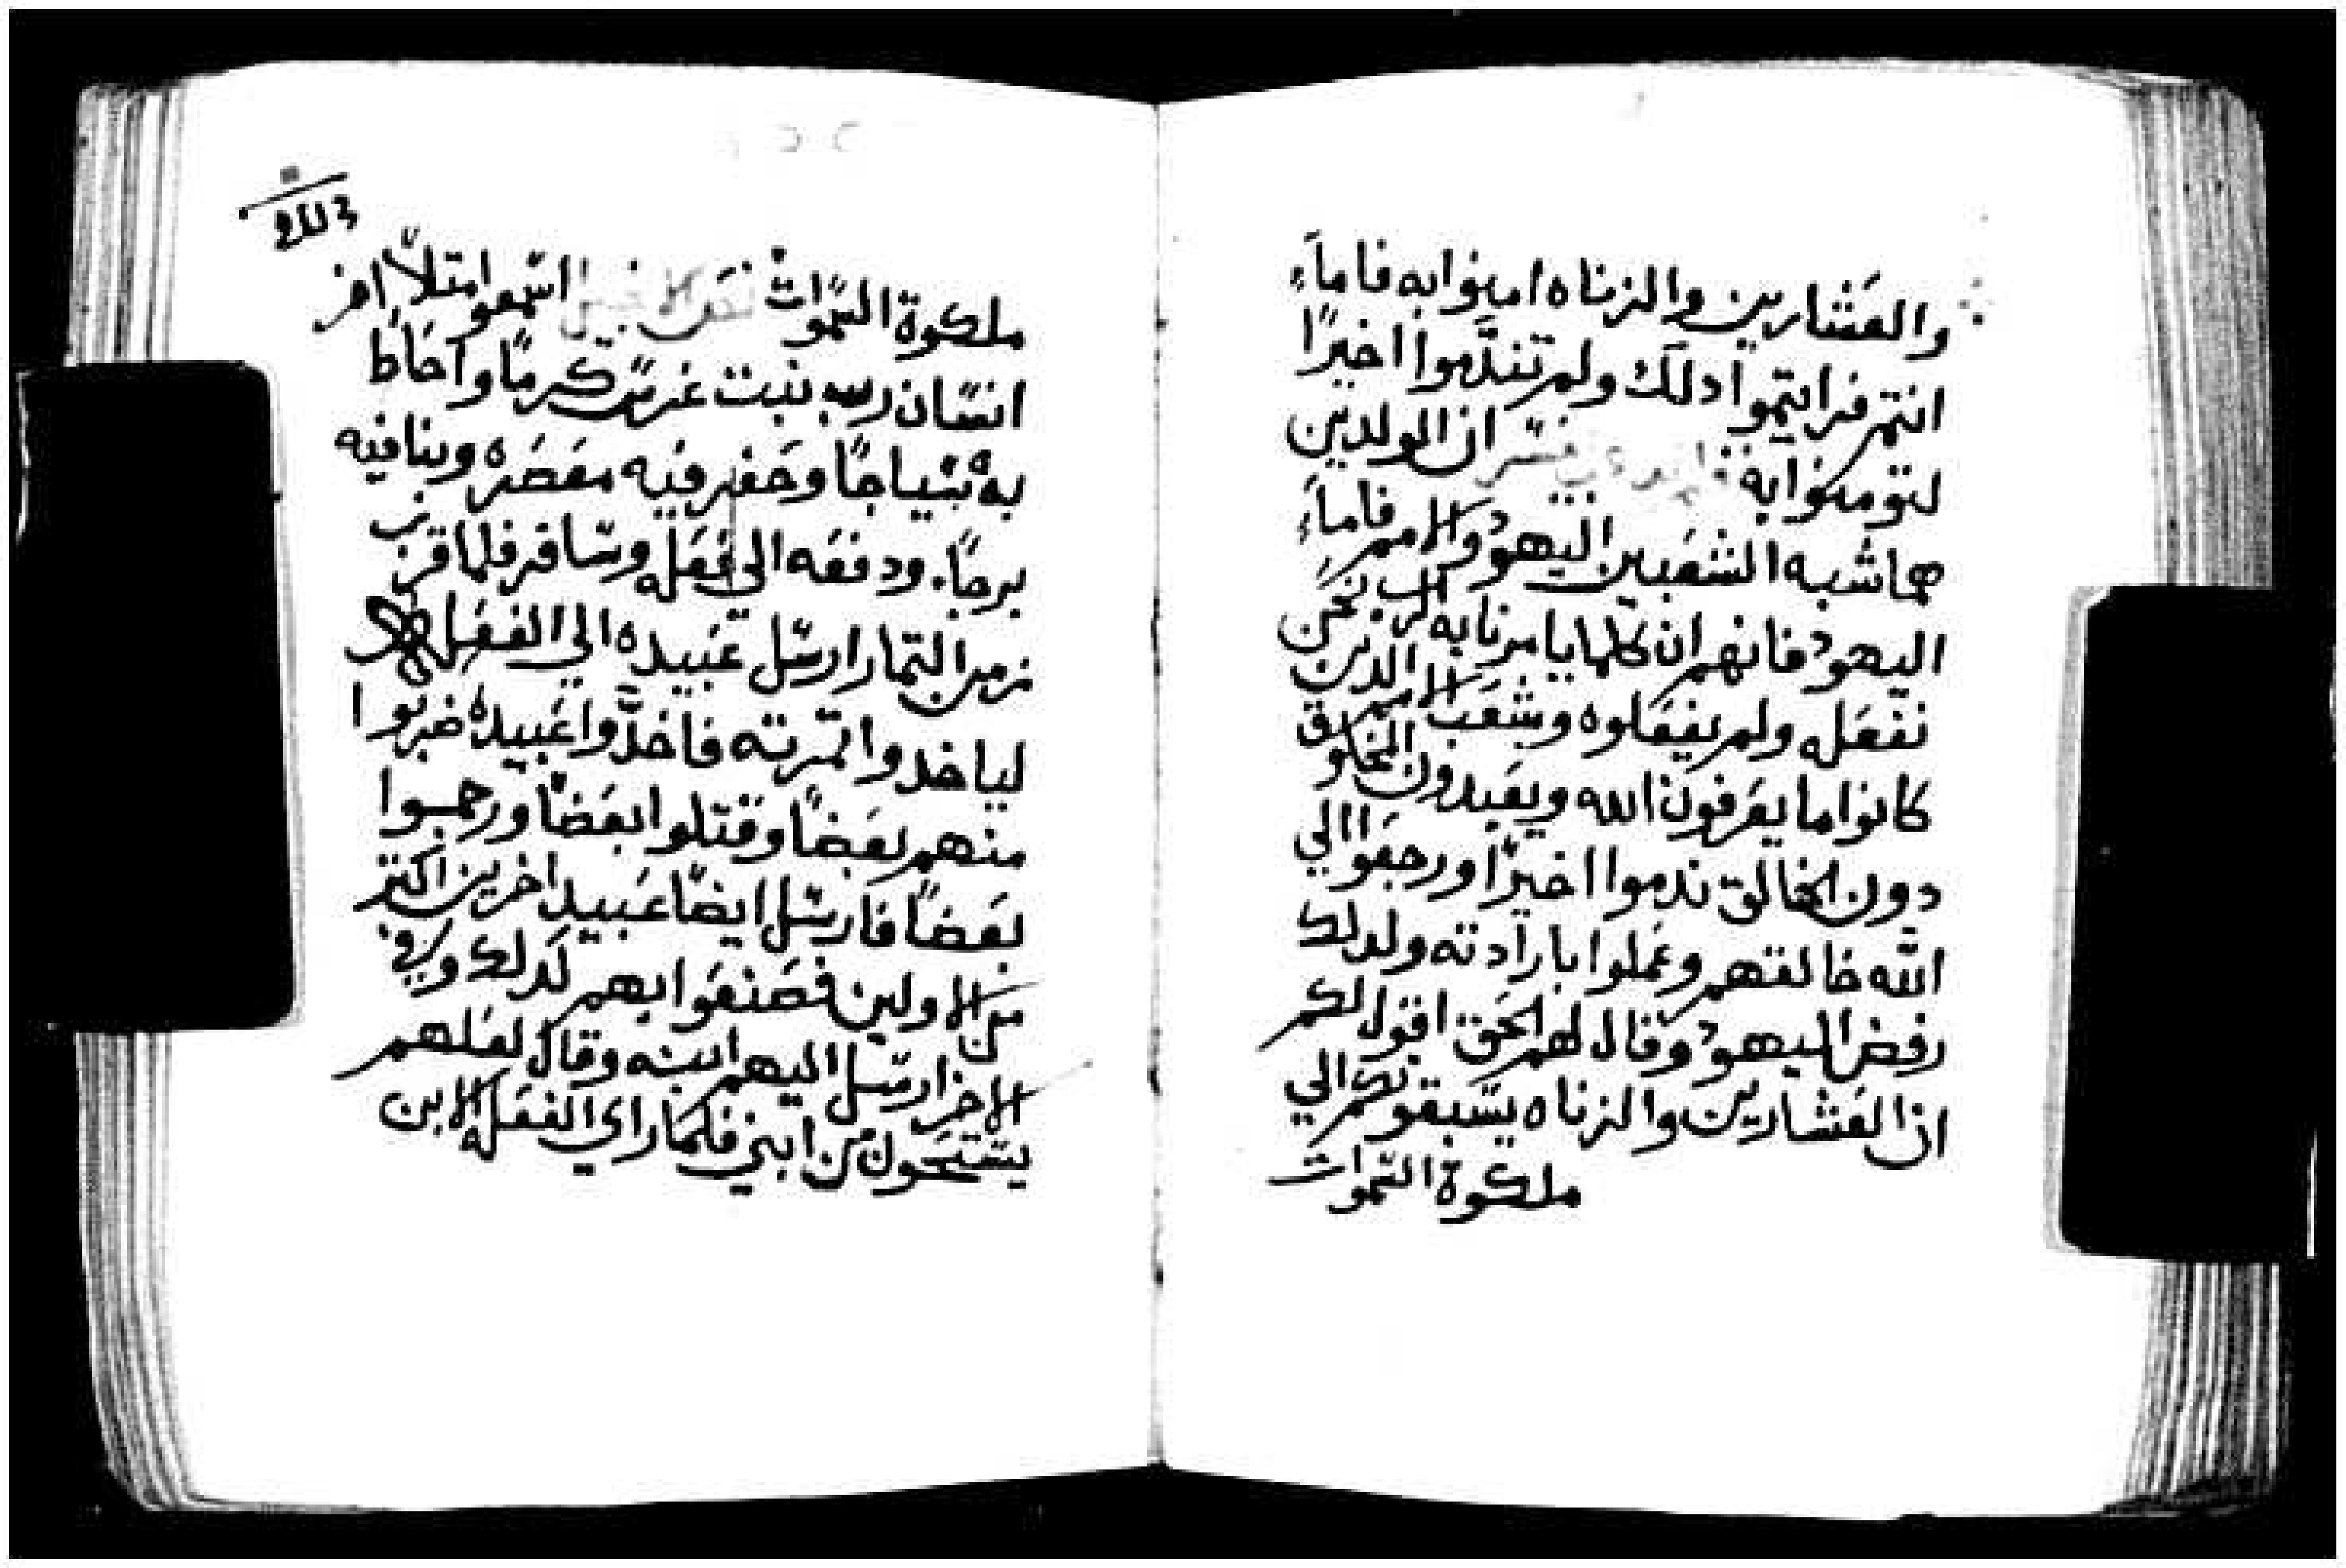 والعشارين والزناه امنوا به فاماء
انتم فرايتموا دلك ولم تندموا اخيرًا
لتومنوا به ان الولدين
هما شبه الشعبين اليهود والامم فاماء
اليهود فانهم ان كلما يامرنا به الرب نحن
نفعله ولم يفعلوه وشعب الامم الدين
كانوا ما يعرفون الله ويعبدون المخلوق
دون الخالق ندموا اخيرًا ورجعوا الي
الله خالقهم وعملوا بارادته ولدلك
رفض اليهود وقال لهم الحق اقول لكم
ان العشارين والزناه يسبقونكم الي
ملكوة السموات
ملكوة السموات اسمعوا متلاً اخر
انسان رب بيت غرس كرمًا واحاط
به سياجًا وحفر فيه معصره وبنا فيه
برجًا. ودفعه الي فعله وسافر فلما قرب
زمن التمار ارسل عبيده الي الفعله
لياخدوا تمرته فاخدوا عبيده ضربوا
منهم بعضًا وقتلوا بعضًا ورجموا
بعضًا فارسل ايضًا عبيد اخرين اكتر
من الاولين فصنعوا بهم كدلك وفي
الاخر ارسل اليهم ابنه وقال لعلهم
يستحون من ابني فلما راي الفعله الابن